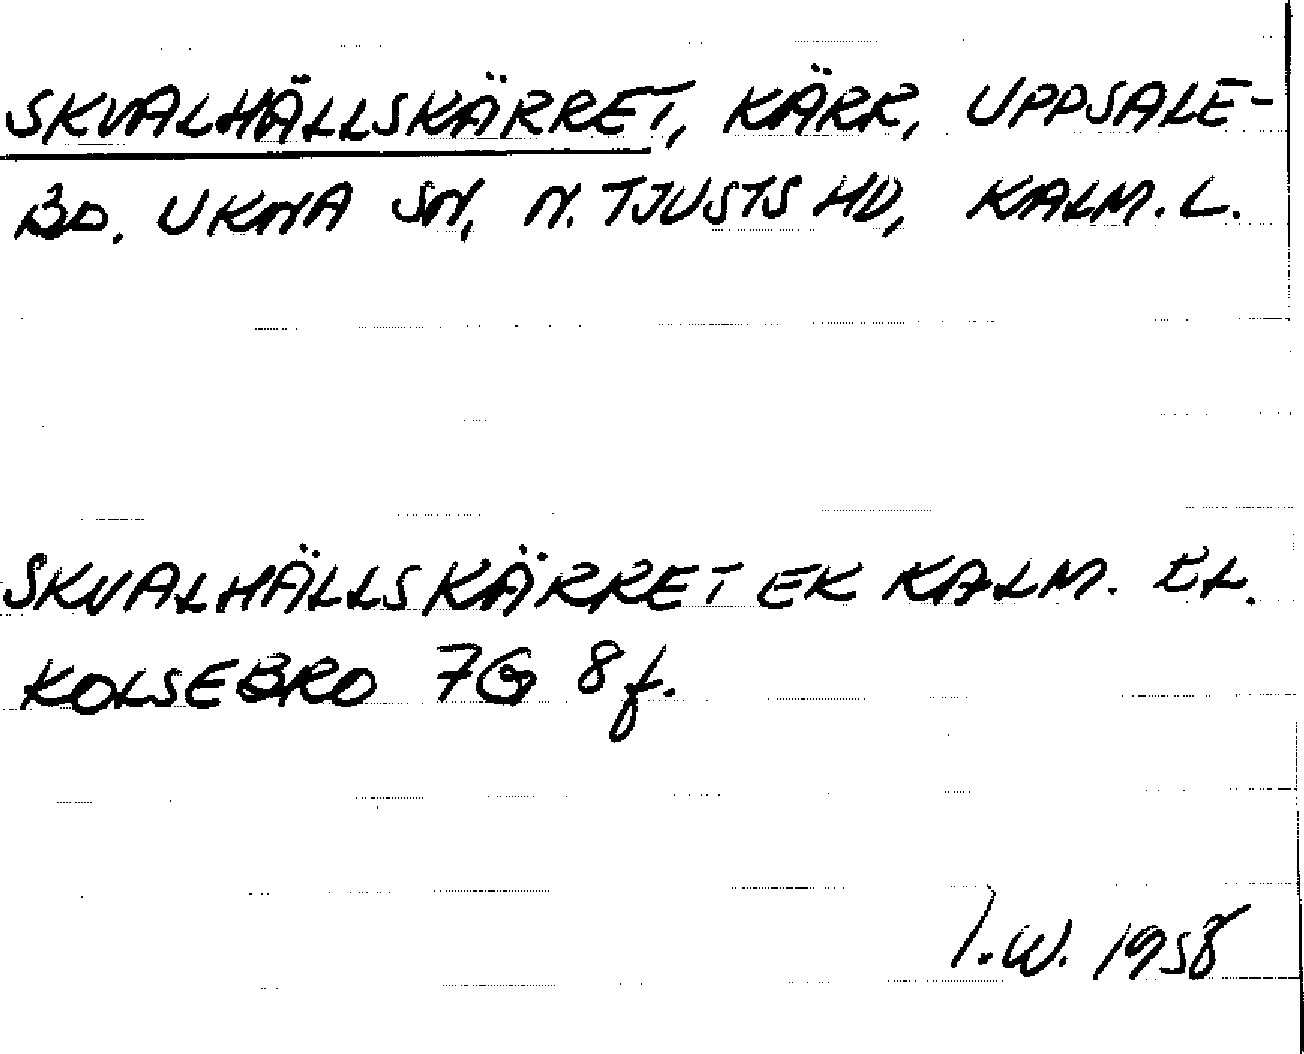 SKVALHÄLLSKÄRRET, KÄRR, UPPSALE-
BO. UKNA SN, N. TJUSTS HD, KALM. L.
SKVALHÄLLSKÄRRET EK KALM. LL.
KOLSEBRO 7G 8f.
I.W. 1958